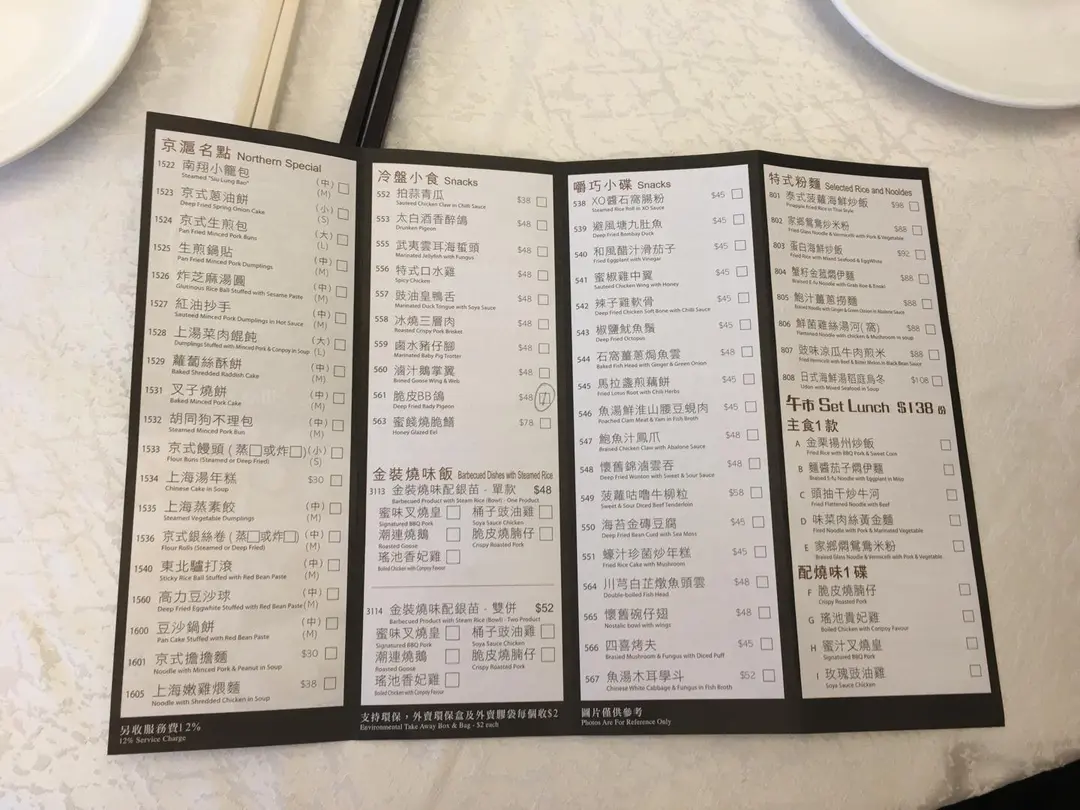 京滬名點 Northern Special
1522 南翔小籠包 (中)
Steamed "Siu Lung Bao" (M)
1523 京式蔥油餅 (小)
Deep Fried Spring Onion Cake (S)
1524 京式生煎包 (大)
Pan Fried Minced Pork Buns (L)
1525 生煎鍋貼 (中)
Pan Fried Minced Pork Dumplings (M)
1526 炸芝麻湯圓 (中)
Glutinous Rice Ball Stuffed with Sesame Paste (M)
1527 紅油抄手 (中)
Sauteed Minced Pork Dumplings in Hot Sauce (M)
1528 上湯菜肉餛飩 (大)
Dumplings Stuffed with Minced Pork & Conpoy in Soup (L)
1529 蘿蔔絲酥餅 (中)
Baked Shredded Raddish Cake (M)
1531 叉子燒餅 (中)
Baked Minced Pork Cake (M)
1532 胡同狗不理包 (中)
Steamed Minced Pork Bun (M)
1533 京式饅頭 (蒸□或炸□) (小)
Flour Buns (Steamed or Deep Fried) (S)
1534 上海湯年糕 $30
Chinese Cake in Soup
1535 上海蒸素餃 (中)
Steamed Vegetable Dumplings (M)
1536 京式銀絲卷 (蒸□或炸□) (中)
Flour Rolls (Steamed or Deep Fried) (M)
1540 東北驢打滾 (中)
Sticky Rice Ball Stuffed with Red Bean Paste (M)
1560 高力豆沙球 (中)
Deep Fried Eggwhite Stuffed with Red Bean Paste (M)
1600 豆沙鍋餅 (中)
Pan Cake Stuffed with Red Bean Paste (M)
1601 京式擔擔麵 $30
Noodle with Minced Pork & Peanut in Soup
1605 上海嫩雞煨麵 $38
Noodle with Shredded Chicken in Soup
另收服務費12%
12% Service Charge
冷盤小食 Snacks
552 拍蒜青瓜 $38
Sauteed Chicken Claw in Chilli Sauce
553 太白酒香醉鴿 $48
Drunken Pigeon
555 武夷雲耳海蜇頭 $48
Marinated Jellyfish with Fungus
556 特式口水雞 $48
Spicy Chicken
557 豉油皇鴨舌 $48
Marinated Duck Tongue with Soya Sauce
558 冰燒三層肉 $48
Roasted Crispy Pork Brisket
559 鹵水豬仔腳 $48
Marinated Baby Pig Trotter
560 滷汁鵝掌翼 $48
Brined Goose Wing & Web
561 脆皮BB鴿 $48
Deep Fried Baby Pigeon
563 蜜餞燒脆鱔 $78
Honey Glazed Eel
金裝燒味飯 Barbecued Dishes with Steamed Rice
3113 金裝燒味配銀苗．單款 $48
Barbecued Product with Steam Rice (Bowl) : One Product
蜜味叉燒皇 桶子豉油雞
Signatured BBQ Pork Soya Sauce Chicken
潮連燒鵝 脆皮燒腩仔
Roasted Goose Crispy Roasted Pork
瑤池香妃雞
Boiled Chicken with Conpoy Favour
3114 金裝燒味配銀苗．雙併 $52
Barbecued Product with Steam Rice (Bowl) : Two Product
蜜味叉燒皇 桶子豉油雞
Signatured BBQ Pork Soya Sauce Chicken
潮連燒鵝 脆皮燒腩仔
Roasted Goose Crispy Roasted Pork
瑤池香妃雞
Boiled Chicken with Conpoy Favour
支持環保，外賣環保盒及外賣膠袋每個收$2
Environmental Take Away Box & Bag - $2 each
嚼巧小碟 Snacks
538 XO醬石窩腸粉 $45
Steamed Rice Roll in XO Sauce
539 避風塘九肚魚 $45
Deep Fried Bombay Duck
540 和風醋汁滑茄子 $45
Fried Eggplant with Vinegar
541 蜜椒雞中翼 $45
Sauteed Chicken Wing with Honey
542 辣子雞軟骨 $45
Deep Fried Chicken Soft Bone with Chilli Sauce
543 椒鹽魷魚鬚 $45
Deep Fried Octopus
544 石窩薑蔥焗魚雲 $48
Baked Fish Head with Ginger & Green Onion
545 馬拉盞煎藕餅 $45
Fried Lotus Root with Chili Herbs
546 魚湯鮮淮山腰豆蜆肉 $45
Peached Clam Meat & Yam in Fish Broth
547 鮑魚汁鳳爪 $48
Braised Chicken Claw with Abalone Sauce
548 懷舊錦滷雲吞 $48
Deep Fried Wonton with Sweet & Sour Sauce
549 菠蘿咕嚕牛柳粒 $58
Sweet & Sour Diced Beef Tenderloin
550 海苔金磚豆腐 $45
Deep Fried Bean Curd with Sea Moss
551 蠔汁珍菌炒年糕 $45
Fried Rice Cake with Mushroom
564 川芎白芷燉魚頭雲 $48
Double-boiled Fish Head
565 懷舊碗仔翅 $48
Nostalic bowl with wings
566 四喜烤夫 $45
Braised Mushroom & Fungus with Diced Puff
567 魚湯木耳學斗 $52
Chinese White Cabbage & Fungus in Fish Broth
圖片僅供參考
Photos Are For Reference Only
特式粉麵 Selected Rice and Nooldes
801 泰式菠蘿海鮮炒飯 $98
Pineapple Fried Rice in Thai Style
802 家鄉鴛鴦炒米粉 $88
Fried Glass Noodle & Vermicelli with Pork & Vegetable
803 蛋白海鮮炒飯 $92
Fried Rice with Mixed Seafood & EggWhite
804 蟹籽金菰燜伊麵 $88
Braised E-fu Noodle with Crab Roe & Enoki
805 鮑汁薑蔥撈麵 $88
Braised Noodle with Ginger & Green Onion in Abalone Sauce
806 鮮菌雞絲湯河(窩) $88
Flattened Noodle with chicken & Mushroom in soup
807 豉味涼瓜牛肉煎米 $88
Fried Vermicelli with Beef & Bitter Melon in Black Bean Sauce
808 日式海鮮湯稻庭烏冬 $108
Udon with Mixed Seafood in Soup
午市 Set Lunch $138 份
主食1款
A 金栗揚州炒飯
Fried Rice with BBQ Pork & Sweet Corn
B 麵醬茄子燜伊麵
Braised E-fu Noodle with Eggplant in Miso
C 頭抽干炒牛河
Fried Flattened Noodle with Beef
D 味菜肉絲黃金麵
Fried Noodle with Pork & Marinated Vegetable
E 家鄉燜鴛鴦米粉
Braised Glass Noodle & Vermicelli with Pork & Vegetable
配燒味1碟
F 脆皮燒腩仔
Crispy Roasted Pork
G 瑤池貴妃雞
Boiled Chicken with Conpoy Favour
H 蜜汁叉燒皇
Signatured BBQ Pork
I 玫瑰豉油雞
Soya Sauce Chicken